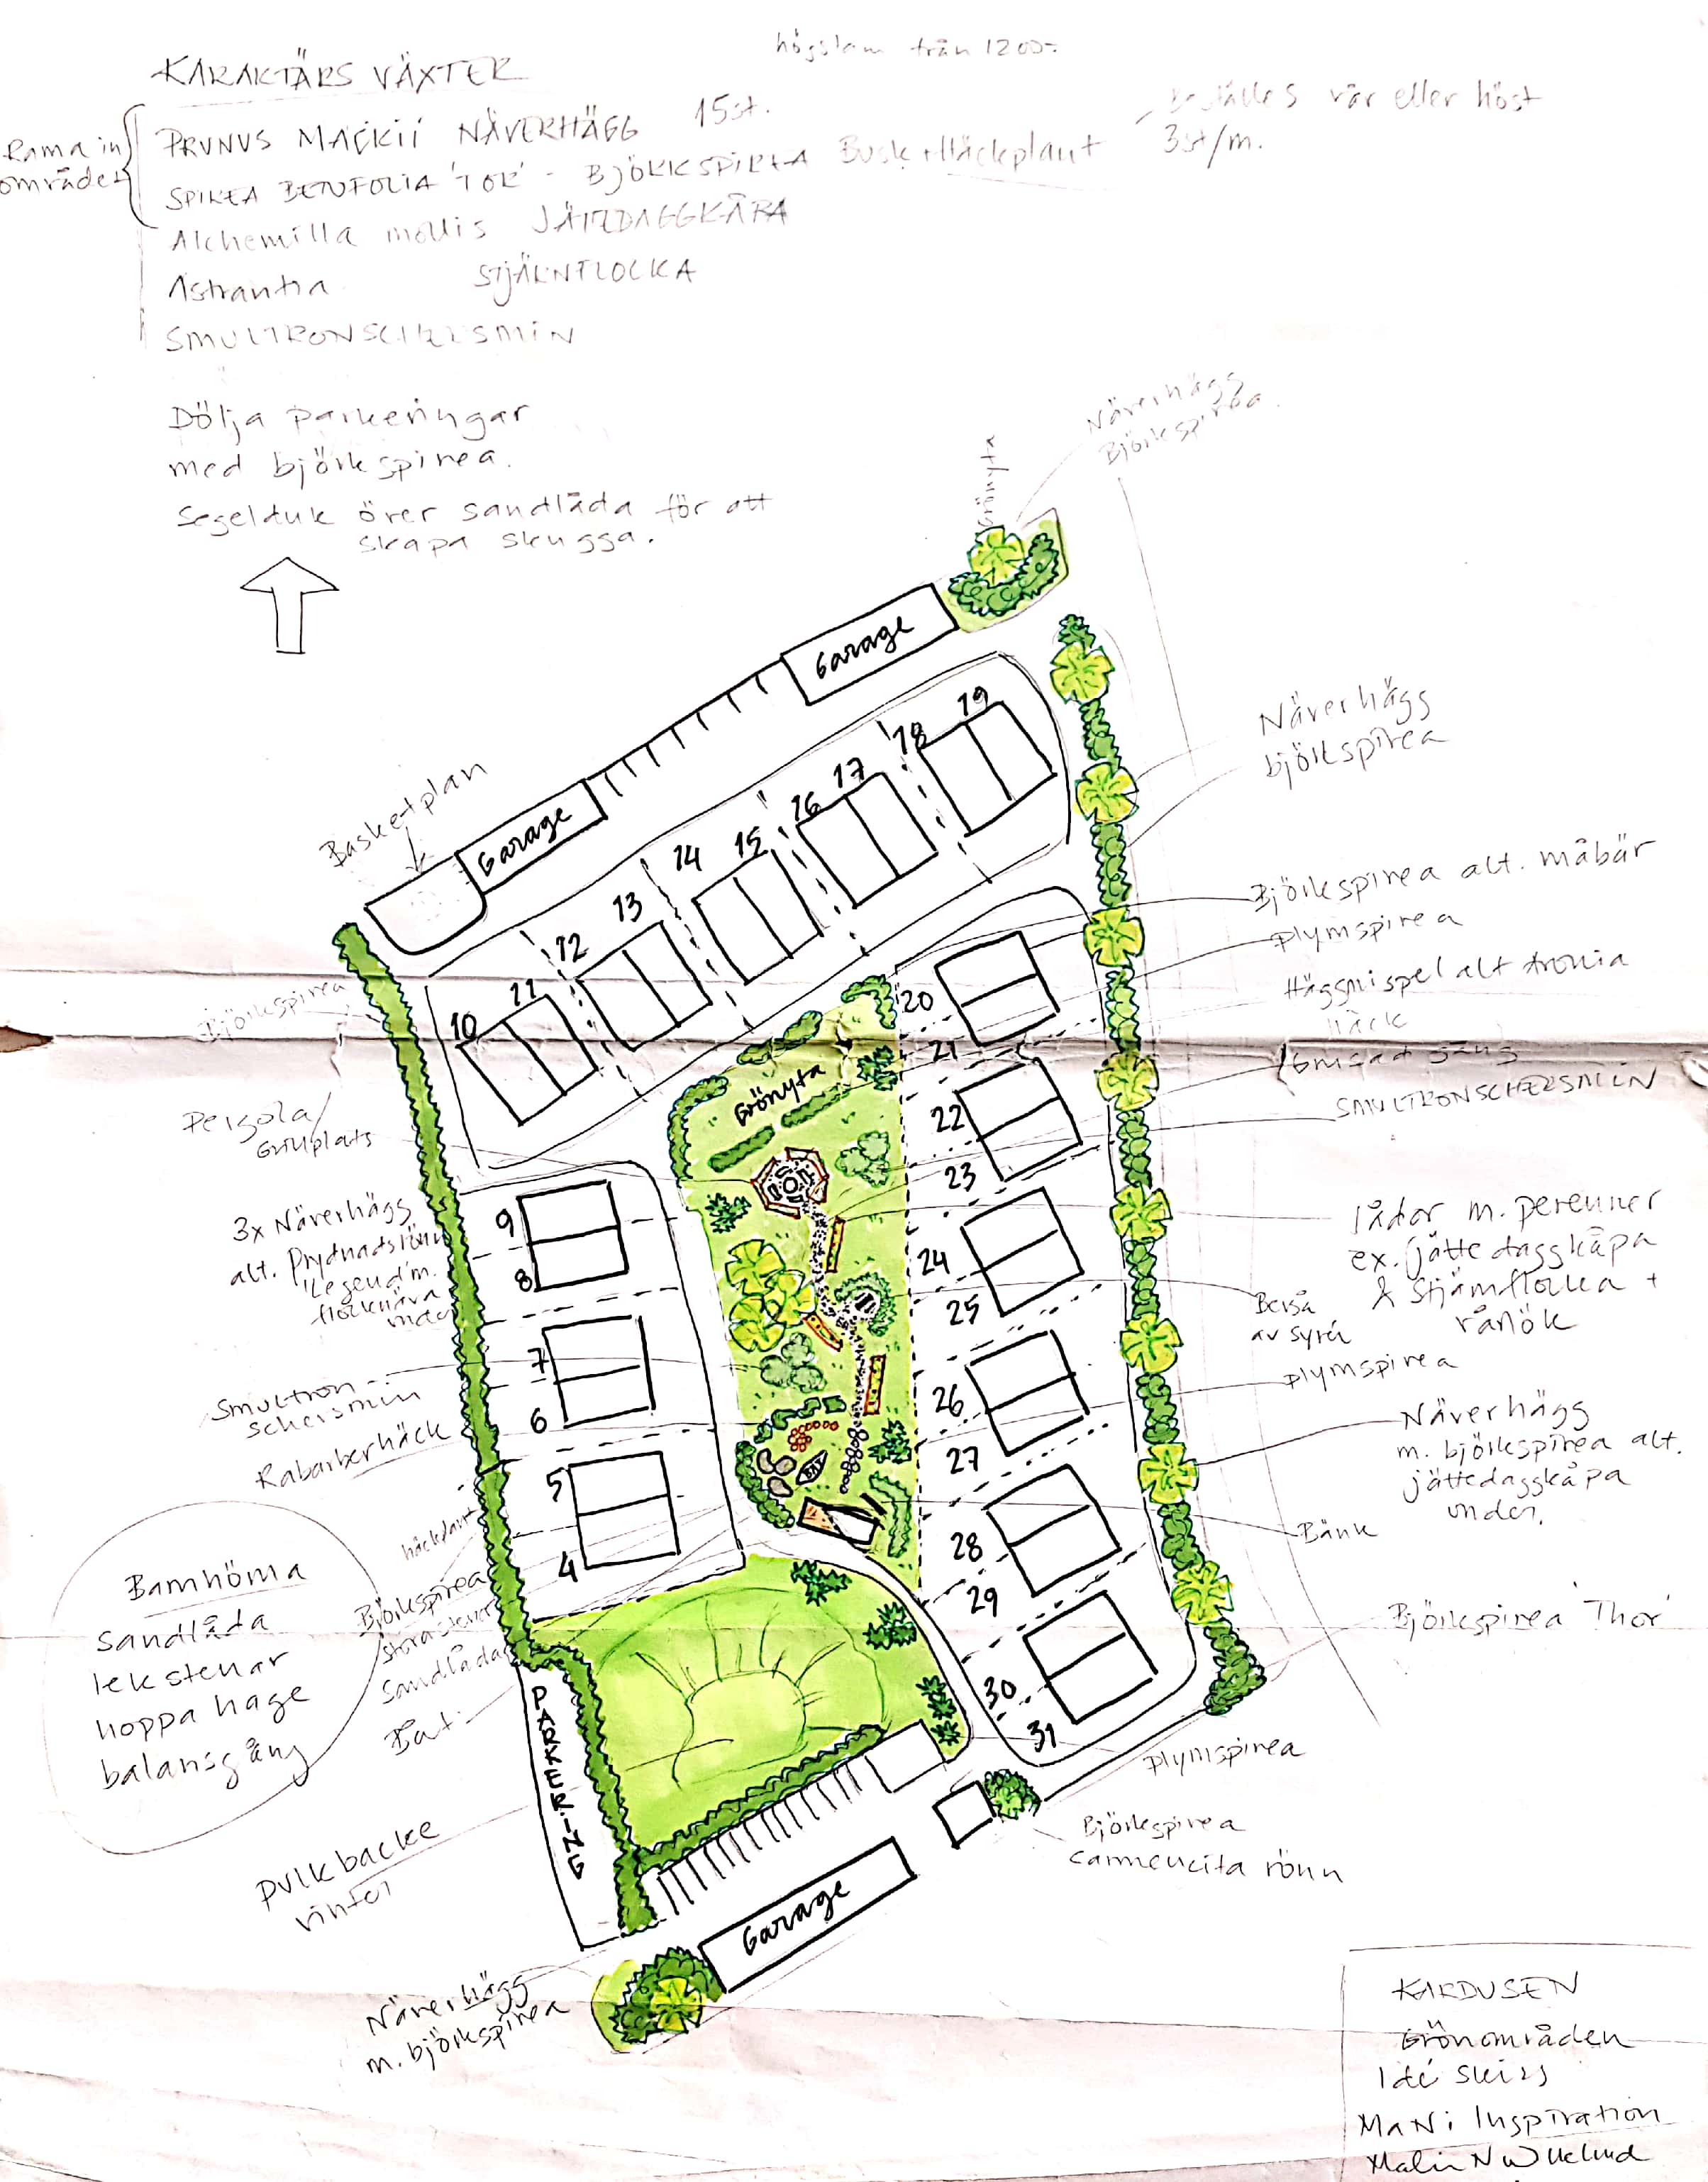 högstam från 1200:-
KARAKTÄRS VÄXTER
Rama in
området
PRUNUS MAACKII NÄVERHÄGG 15st.
Beställes vår eller höst
SPIREA BETUFOLIA 'TOR' - BJÖRKSPIREA Busk Häckplant 3st/m.
Alchemilla mollis JÄTTEDAGGKÅPA
Astrantia STJÄRNFLOCKA
SMULTRONSCHERSMIN
Dölja parkeringar
med björkspirea.
Segelduk över sandlåda för att
skapa skugga.
Näverhägg
Björkspirea.
Grönyta
Garage
Näverhägg
björkspirea
Basketplan
Garage
19
18
17
16
15
14
13
12
11
10
Björkspirea alt. måbär
plymspirea
Häggmispel alt aronia
häck
Grusad gång
SMULTRONSCHERSMIN
Björkspirea
Pergola/
Grillplats
Grönyta
20
21
22
23
24
25
26
27
28
29
30
31
9
8
7
6
5
4
3x Näverhägg
alt. Prydnadslönn
'Legend' m.
flocknäva
under
lådor m. perenner
ex. jättedaggkåpa
& Stjärnflocka +
rånök
Berså
av syrén
plymspirea
Smultron-
schersmin
Rabarberhäck
Näverhägg
m. björkspirea alt.
jättedaggkåpa
under.
Bänk
häckplant
Björkspirea
stora stenar
Sandlåda
Båt
Barnhörna
sandlåda
lekstenar
hoppa hage
balansgång
Björkspirea 'Thor'
PARKERING
plymspirea
Björkspirea
carmencita rönn
pulkbacke
vinter
Garage
Näverhägg
m. björkspirea
KARDUSEN
Grönområden
Idé skiss
MaNi Inspiration
Malin N Wiklund